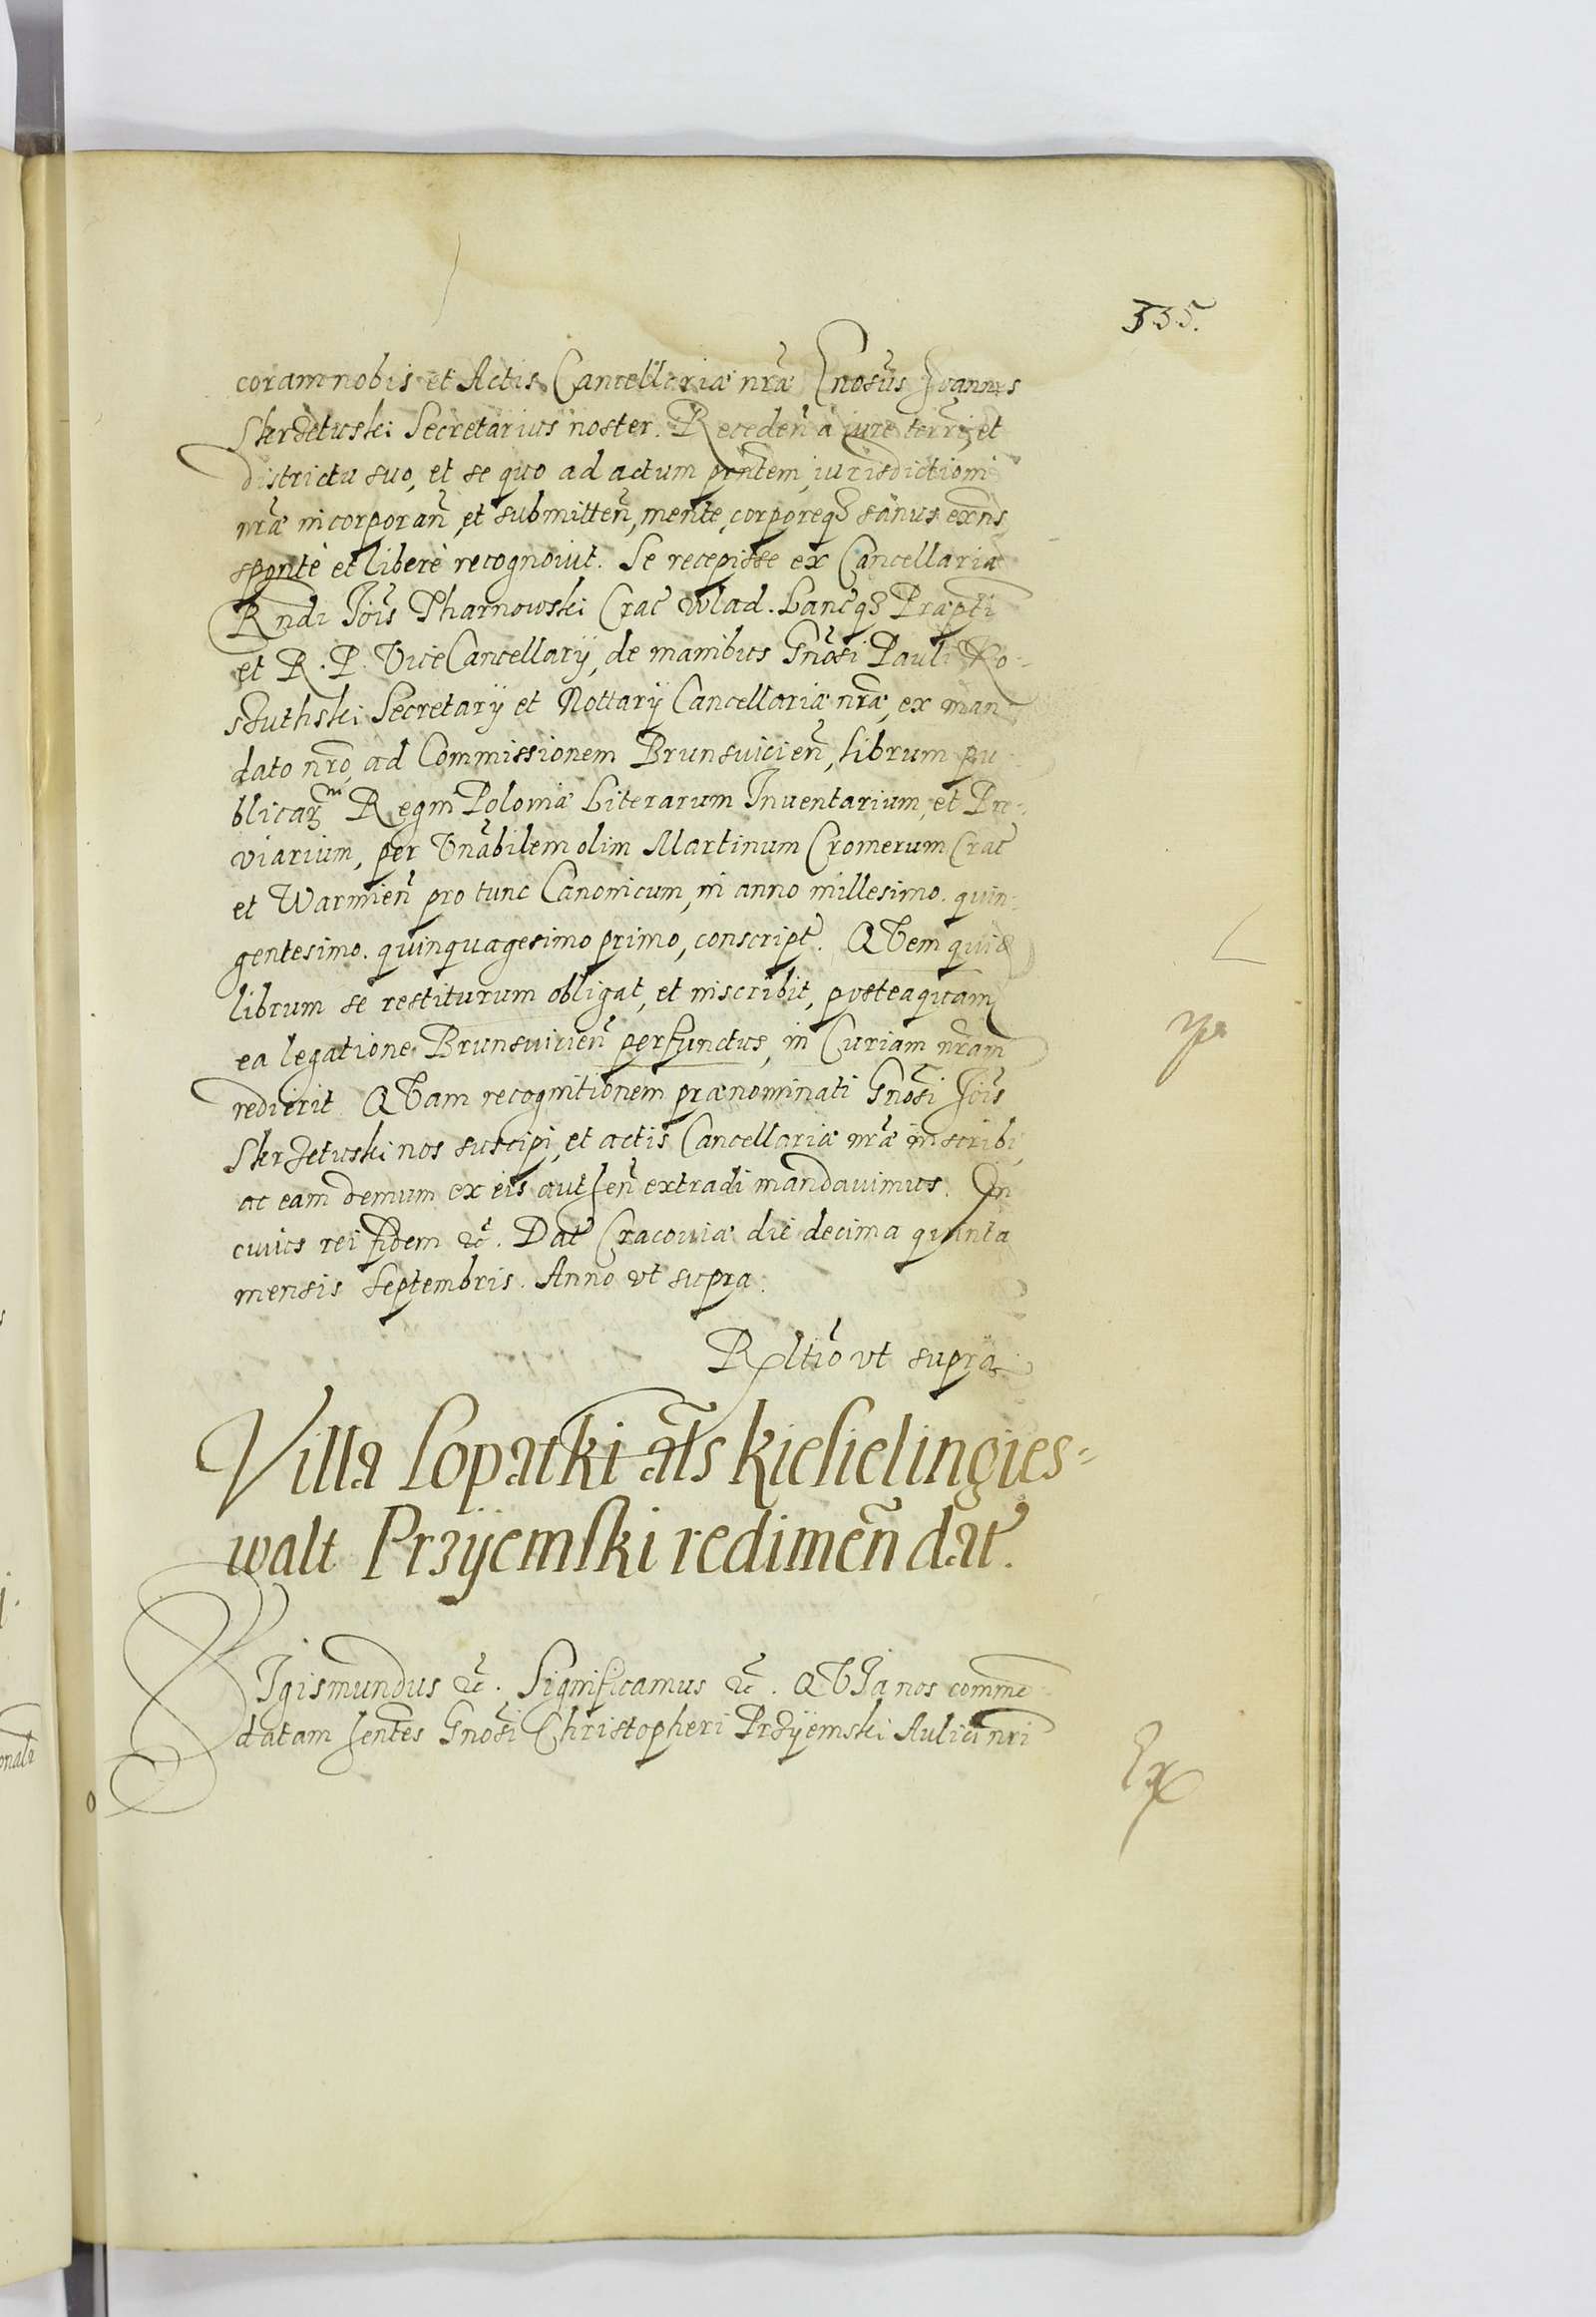 335.
coram nobis et Actis Cancellariæ nræ Gnosus Joannes
Skrzetuski Secretarius noster. Receden a iure terrį et
districtu suo, et se quo ad actum pntem iurisdictioni
nræ incorporan, et submitten, mente, corporeq3 sanus exns
sponte et liberè recognovit. Se recepisse ex Cancellaria
Rndi Jois Tharnowski Crac Wlad. Lancq3 Præpti
et R. P. ViceCancellarÿ, de manibus Gnosi Pauli Ko-
szuthski Secretarÿ et Nottarÿ Cancellariæ nræ, ex man
dato nro, ad Commissionem Brunsuicien, librum pu
blicarum Regni Poloniæ Literarum Inuentarium, et Bre-
viarium, per Vnabilem olim Martinum Cromerum Crac
et Warmien pro tunc Canonicum, in anno millesimo. quin-
gentesimo. quinquagesimo primo, conscript. QVem quid
librum se restiturum obligat, et inscribit, posteaquam
ea legatione Brunsuicien perfunctus, in Curiam nram
redierit. QVam recognitionem prænominati Gnosi Jois
Skrzetuski nos suscipi, et actis Cancellariæ nræ inscribi,
ac eam demum ex eis authen extradi mandauimus. In
cuius rei fidem &c. Dat Cracouiæ die decima quinta
mensis Septembris. Anno vt supra.
Rltio vt supra.
Villa Lopatki als Kieslelingies-
walt Przÿemski redimen dat.
SIgismundus &c. Significamus &c. QVIa nos comme
datam hentes Gnosi Christopheri Przÿemski Aulici nri
Ex